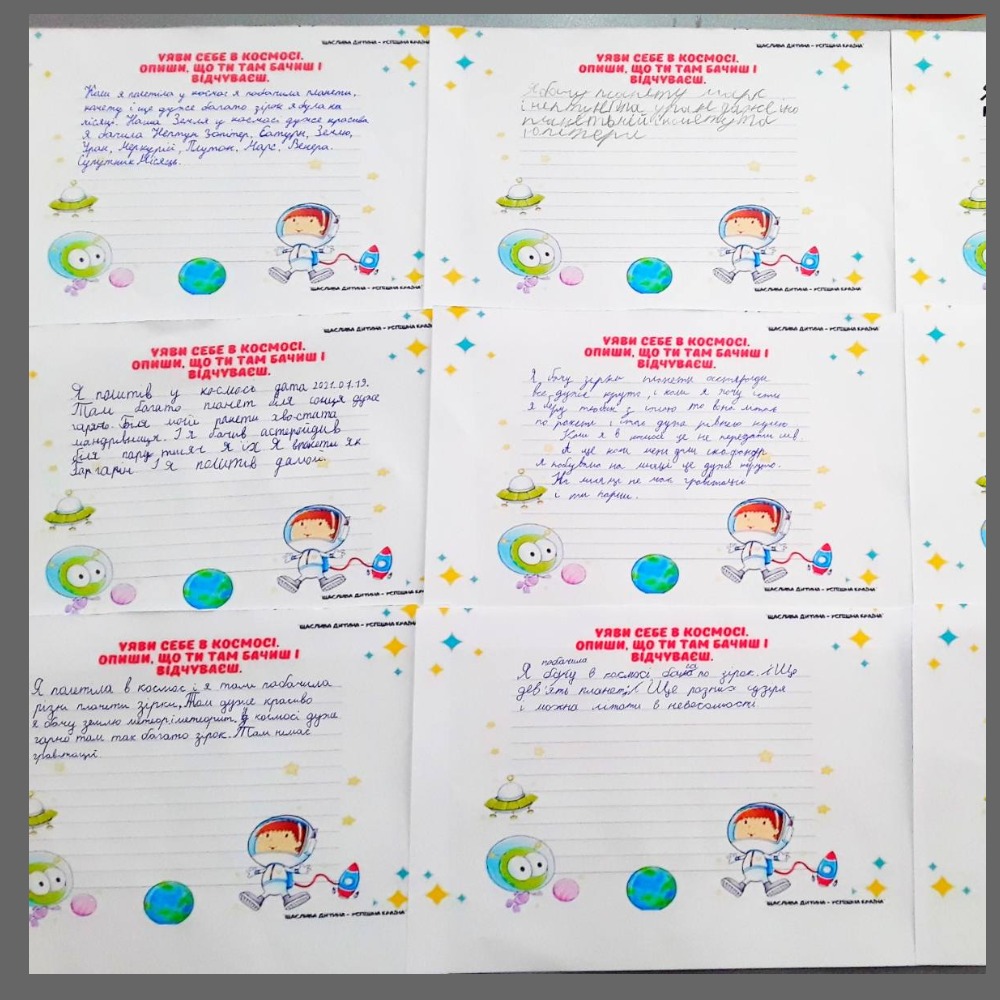 ЩАСЛИВА ДИТИНА – УСПІШНА КРАЇНА
УЯВИ СЕБЕ В КОСМОСІ.
ОПИШИ, ЩО ТИ ТАМ БАЧИШ І
ВІДЧУВАЄШ.
Коли я полетіла у космос я побачила планети,
комету і ще дуже багато зірок я була на
місяці. Наша Земля у космосі дуже красива
Я бачила Нептун Юпітер, Сатурн, Землю,
Уран, Меркурій, Плутон. Марс. Венера.
Супутник Місяць.
ЩАСЛИВА ДИТИНА – УСПІШНА КРАЇНА
УЯВИ СЕБЕ В КОСМОСІ.
ОПИШИ, ЩО ТИ ТАМ БАЧИШ І
ВІДЧУВАЄШ.
Я бачу планету марс
і нептун та уран
ЩАСЛИВА ДИТИНА – УСПІШНА КРАЇНА
ЩАСЛИВА ДИТИНА – УСПІШНА КРАЇНА
УЯВИ СЕБЕ В КОСМОСІ.
ОПИШИ, ЩО ТИ ТАМ БАЧИШ І
ВІДЧУВАЄШ.
Я політів у космось дата 2021.01.19.
Там багато планет біля сонця дуже
гаряче. Біля моїй ракети хвостата
мандрівниця. І я бачив астеройдив
біля пару тисяч я їх
І я політів далой.
ЩАСЛИВА ДИТИНА – УСПІШНА КРАЇНА
ЩАСЛИВА ДИТИНА – УСПІШНА КРАЇНА
УЯВИ СЕБЕ В КОСМОСІ.
ОПИШИ, ЩО ТИ ТАМ БАЧИШ І
ВІДЧУВАЄШ.
Я бачу зірки планети астероїди
все дуже круто, і коли я хочу їсти
я беру тюбик з їжею
по ракеті і їм дуже
Коли я в космосі це не передати слів
Я ще коли мені дали скафандр
я побувала на місяці це дуже круто.
На місяці не має гравітації
ЩАСЛИВА ДИТИНА – УСПІШНА КРАЇНА
ЩАСЛИВА ДИТИНА – УСПІШНА КРАЇНА
УЯВИ СЕБЕ В КОСМОСІ.
ОПИШИ, ЩО ТИ ТАМ БАЧИШ І
ВІДЧУВАЄШ.
Я полетіла в космос і я там побачила
різни планети зірки. Там дуже красиво
я бачу землю метеорі метеорит. В космосі дуже
гарно там так багато зірок. Там немає
гравітації.
ЩАСЛИВА ДИТИНА – УСПІШНА КРАЇНА
ЩАСЛИВА ДИТИНА – УСПІШНА КРАЇНА
УЯВИ СЕБЕ В КОСМОСІ.
ОПИШИ, ЩО ТИ ТАМ БАЧИШ І
ВІДЧУВАЄШ.
побачила
Я бачу в космосі багато зірок. Ще
дев'ять планет. Ще різних сузіря
і можна літати в невагомості.
ЩАСЛИВА ДИТИНА – УСПІШНА КРАЇНА